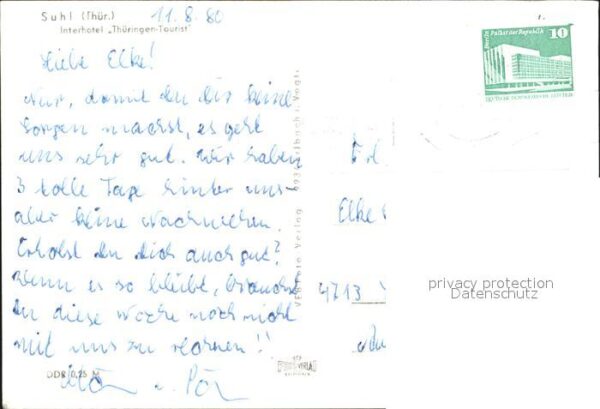 Suhl (Thür.)
Interhotel „Thüringen-Tourist"
11.8.80
Liebe Elke!
Nur, damit du dir keine
Sorgen machst, es geht
uns sehr gut. Wir haben
3 tolle Tage hinter uns
aber keine Nachwehen.
Erholst du dich auch gut?
Wenn es so bleibt, brauchst
du diese Woche noch nicht
mit uns zu rechnen!!
u.
DDR 0,25 M
Verlag
Berlin Palast der Republik
10
DDR
Elke
4713
privacy protection
Datenschutz